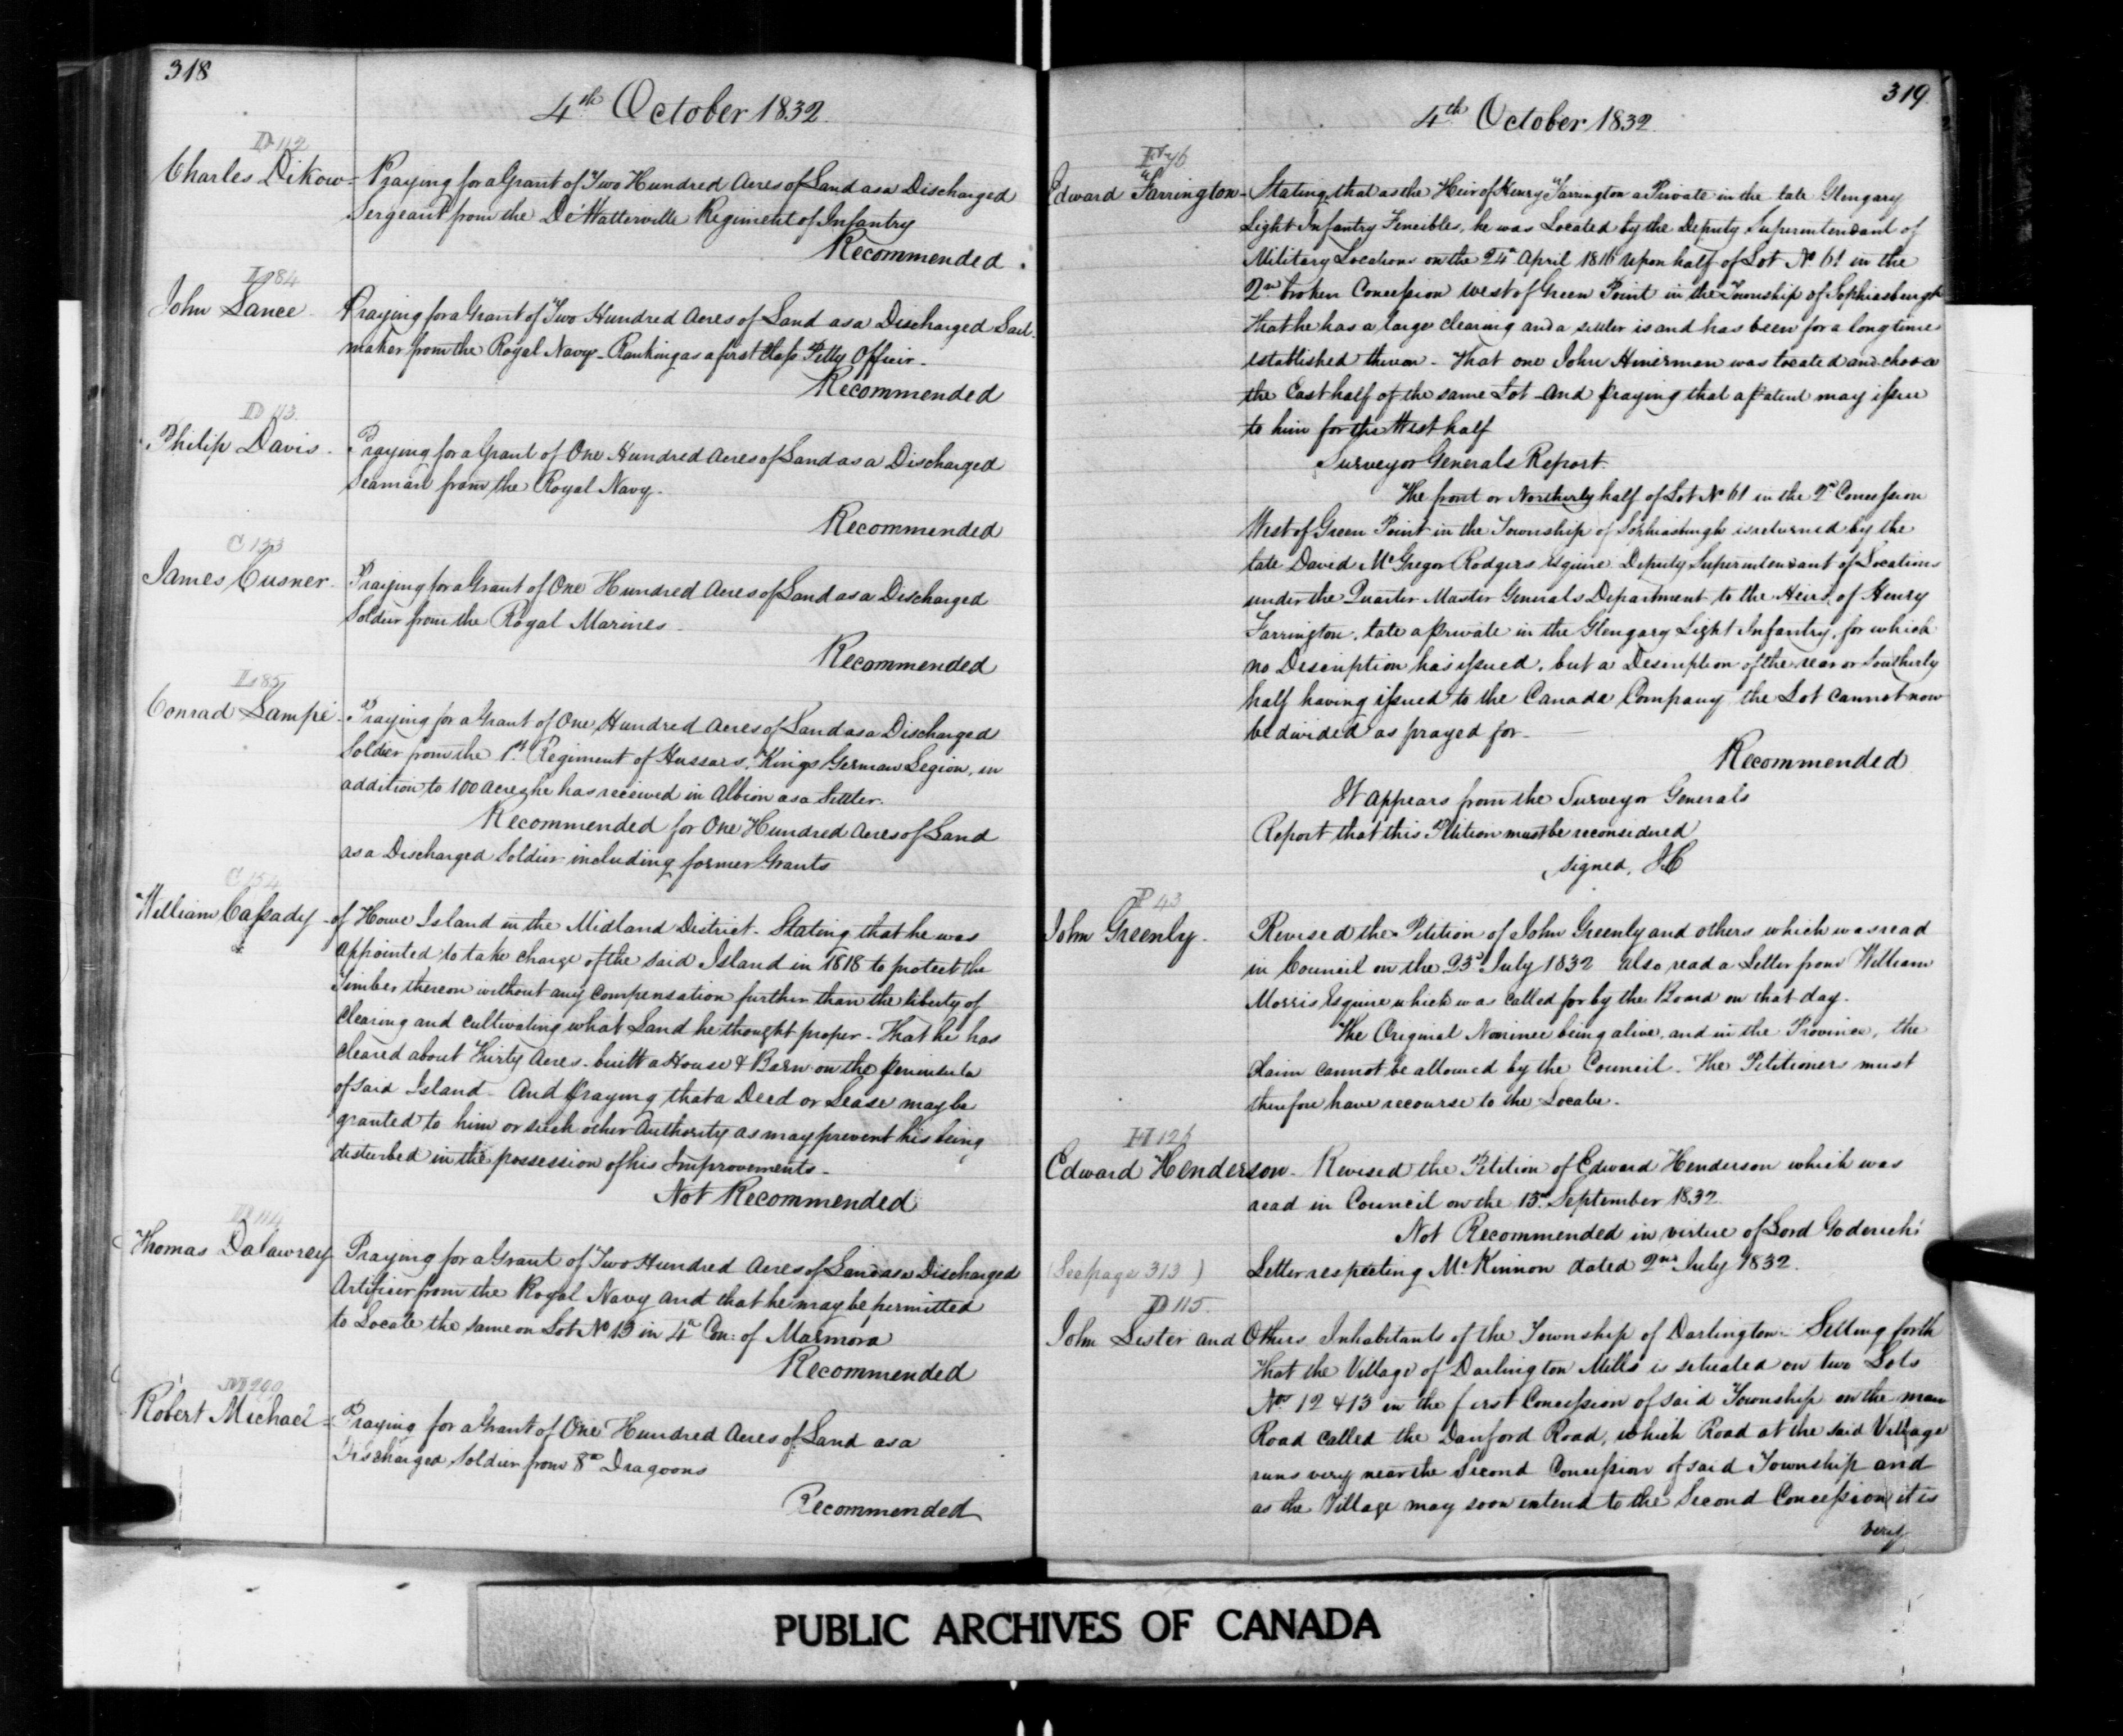 318
4th October 1832.
D 112
Charles Dikow - Praying for a Grant of Two Hundred Acres of Land as a Discharged
Sergeant from the De Watterville Regiment of Infantry
Recommended.
L 84
John Lance - Praying for a Grant of Two Hundred Acres of Land as a Discharged Sail-
maker from the Royal Navy - Ranking as a first Class Petty Officer -
Recommended
D 113.
Philip Davis. Praying for a Grant of One Hundred Acres of Land as a Discharged
Seaman from the Royal Navy.
Recommended
C 153
James Cusner. Praying for a Grant of One Hundred Acres of Land as a Discharged
Soldier from the Royal Marines -
Recommended
L 85
Conrad Lampé - Praying for a Grant of One Hundred Acres of Land as a Discharged
Soldier from the 1st Regiment of Hussars, Kings German Legion, in
addition to 100 acres he has received in Albion as a Settler.
Recommended for One Hundred Acres of Land
as a Discharged Soldier including former Grants
C 154
William Cassady - of Howe Island in the Midland District - Stating that he was
appointed to take charge of the said Island in 1818 to protect the
Timber thereon without any compensation further than the liberty of
clearing and cultivating what Land he thought proper - That he has
cleared about Thirty Acres - built a House & Barn on the peninsula
of said Island - And praying that a Deed or Lease may be
granted to him or such other Authority as may prevent his being
disturbed in the possession of his Improvements -
Not Recommended
D 114
Thomas Dalawrey Praying for a Grant of Two Hundred Acres of Land as a Discharged
Artificer from the Royal Navy and that he may be permitted
to Locate the same on Lot No 13 in 4th Con: of Marmora
Recommended
M 200
Robert Michael - Praying for a Grant of One Hundred Acres of Land as a
Discharged Soldier from 8th Dragoons
Recommended
319
4th October 1832.
Edward Farrington - Stating that as the Heir of Henry Farrington a Private in the late Glengary
Light Infantry Fencibles, he was Located by the Deputy Superintendant of
Military Locations on the 24th April 1816 upon half of Lot No 61 in the
2nd broken Concession West of Green Point in the Township of Sophiasburgh
That he has a large clearing and a settler is and has been for a long time
established thereon - That one John Hinerman was located and choose
the East half of the same Lot - And praying that a Patent may issue
to him for the West half
Surveyor Generals Report.
The front or Northerly half of Lot No 61 in the 2nd Concession
West of Green Point in the Township of Sophiasburgh is returned by the
late David McGregor Rodgers Esquire Deputy Superintendant of Locations
under the Quarter Master Generals Department to the Heirs of Henry
Farrington, late a private in the Glengary Light Infantry, for which
no Description has issued, but a Description of the rear or Southerly
half having issued to the Canada Company the Lot cannot now
be divided as prayed for -
Recommended
It appears from the Surveyor Generals
Report that this Petition must be reconsidered
signed, JC
P 43
John Greenly. Revised the Petition of John Greenly and others which was read
in Council on the 23d July 1832 also read a Letter from William
Morris Esquire which was called for by the Board on that day.
The Original Nominee being alive, and in the Province, the
claim cannot be allowed by the Council. The Petitioners must
therefore have recourse to the Locatee.
H 126
Edward Henderson - Revised the Petition of Edward Henderson which was
read in Council on the 15th September 1832
Not Recommended in virtue of Lord Goderich's
(See page 313) Letter respecting McKinnon dated 2nd July 1832.
D 115.
John Lister and Others Inhabitants of the Township of Darlington - Setting forth
That the Village of Darlington Mills is situated on two Lots
Nos 12 & 13 in the first Concession of said Township on the main
Road called the Danford Road, which Road at the said Village
runs very near the Second Concession of said Township and
as the Village may soon extend to the Second Concession it is
very
PUBLIC ARCHIVES OF CANADA